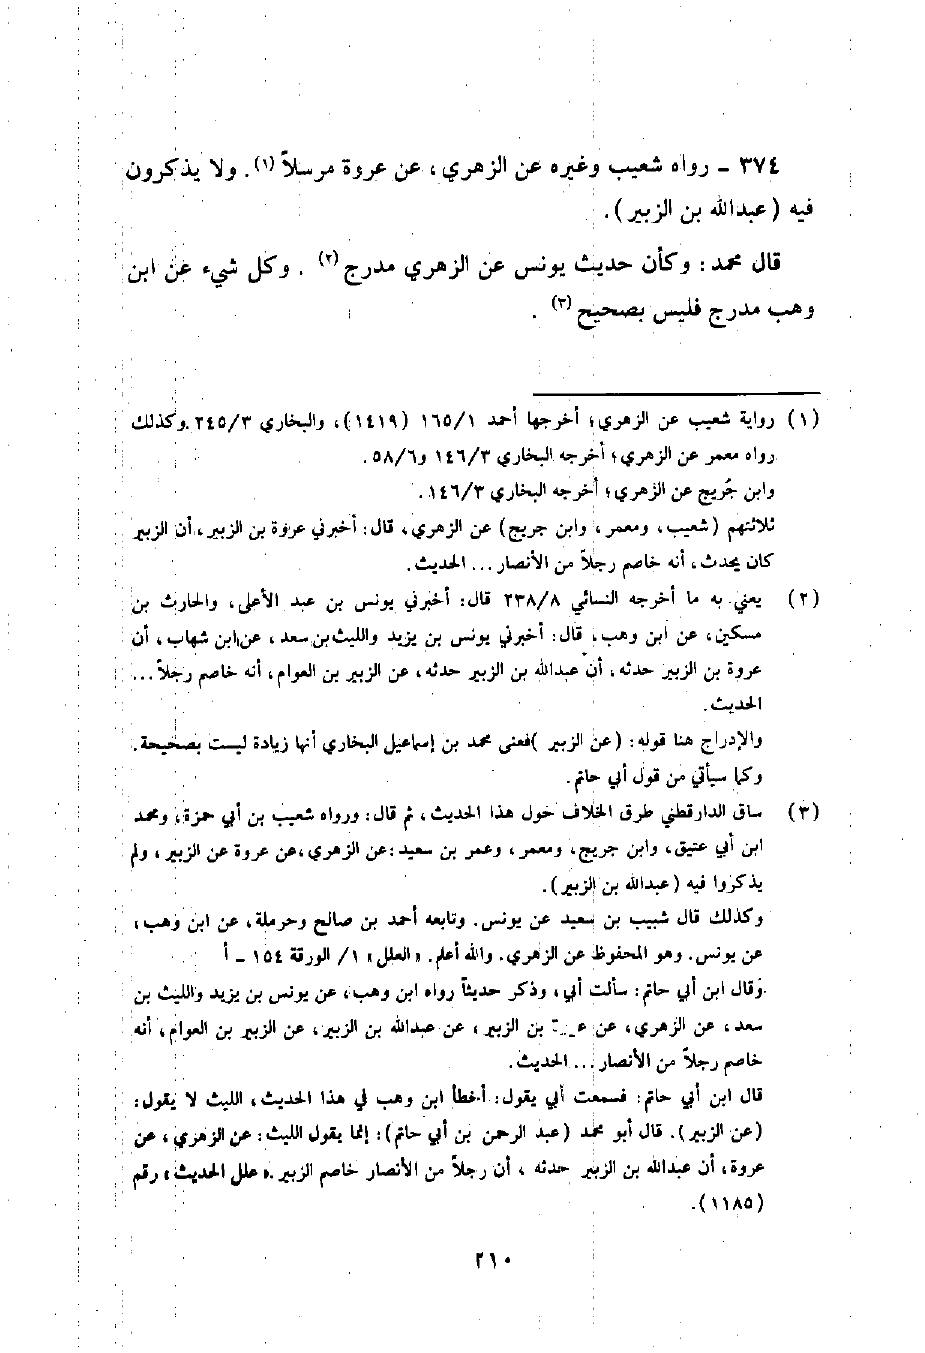 ٣٧٤ ـ رواه شعيب وغيره عن الزهري ، عن عروة مرسلاً (١). ولا يذكرون
فيه ( عبدالله بن الزبير ).
قال محمد : وكأن حديث يونس عن الزهري مدرج (٢) . وكل شيء عن ابن
وهب مدرج فليس بصحيح (٣) .
(١) رواية شعيب عن الزهري؛ أخرجها أحمد ١٦٥/١ (١٤١٩)، والبخاري ٢٤٥/٣ .وكذلك
رواه معمر عن الزهري؛ أخرجه البخاري ١٤٦/٣ و٥٨/٦.
وابن جُريج عن الزهري؛ أخرجه البخاري ١٤٦/٣.
ثلاثتهم (شعيب، ومعمر، وابن جريج) عن الزهري، قال: أخبرني عروة بن الزبير ، أن الزبير
كان يحدث، أنه خاصم رجلاً من الأنصار ... الحديث.
(٢) يعني به ما أخرجه النسائي ٢٣٨/٨ قال: أخبرني يونس بن عبد الأعلى، والحارث بن
مسكين، عن ابن وهب، قال: أخبرني يونس بن يزيد والليث بن سعد ، عن ابن شهاب ، أن
عروة بن الزبير حدثه ، أن عبدالله بن الزبير حدثه، عن الزبير بن العوام، أنه خاصم رجلاً...
الحديث.
والإدراج هنا قوله: (عن الزبير )فعنى محمد بن إسماعيل البخاري أنها زيادة ليست بصحيحة.
وكما سيأتي من قول أبي حاتم.
(٣) ساق الدارقطني طرق الخلاف حول هذا الحديث، ثم قال: ورواه شعيب بن أبي حمزة، ومحمد
ابن أبي عتيق، وابن جريج، ومعمر، وعمر بن سعيد:عن الزهري،عن عروة عن الزبير ، ولم
يذكروا فيه (عبدالله بن الزبير).
وكذلك قال شبيب بن سعيد عن يونس. وتابعه أحمد بن صالح وحرملة، عن ابن وهب،
عن يونس. وهو المحفوظ عن الزهري. والله أعلم. «العلل» ١/ الورقة ١٥٤ ـ أ
وقال ابن أبي حاتم: سألت أبي، وذكر حديثاً رواه ابن وهب، عن يونس بن يزيد والليث بن
سعد، عن الزهري، عن بن الزبير، عن عبدالله بن الزبير، عن الزبير بن العوام، أنه
خاصم رجلاً من الأنصار ... الحديث.
قال ابن أبي حاتم: فسمعت أبي يقول: أخطأ ابن وهب في هذا الحديث، الليث لا يقول:
(عن الزبير). قال أبو محمد (عبد الرحمن بن أبي حاتم): إنما يقول الليث: عن الزهري، عن
عروة، أن عبدالله بن الزبير حدثه ، أن رجلاً من الأنصار خاصم الزبير .« علل الحديث» رقم
(١١٨٥).
٢١٠